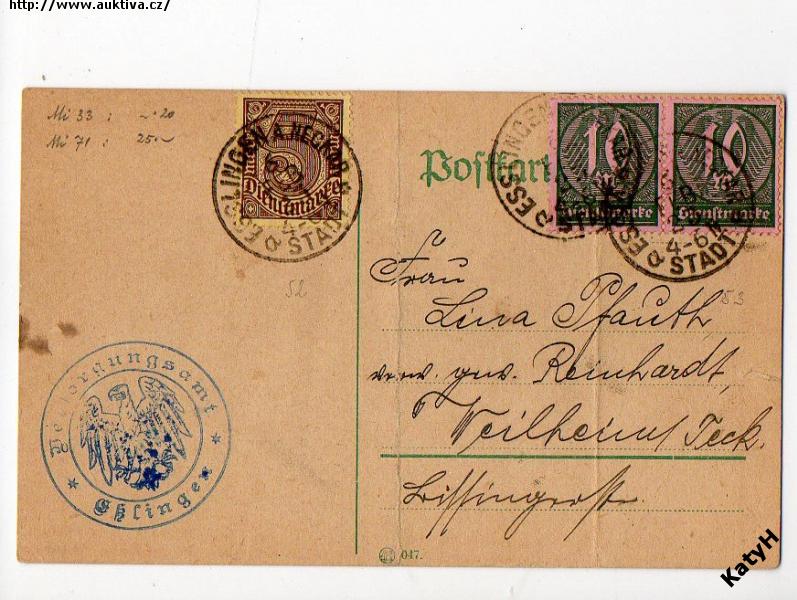 http://www.auktiva.cz/
Mi 33 : -.20
Mi 71 : 25.-
ESSLINGEN A. NECKAR
STADT
4-
5
Dienstmarke
Postkart
ESSLINGEN
10
Dienstmarke
10
Dienstmarke
4-6
STADT
52
53
Frau
Lina Pfauth
verw. gew. Reinhardt,
Weilheim/Teck.
Bissingerstr.
Versorgungsamt
Eßlingen
047.
KatyH